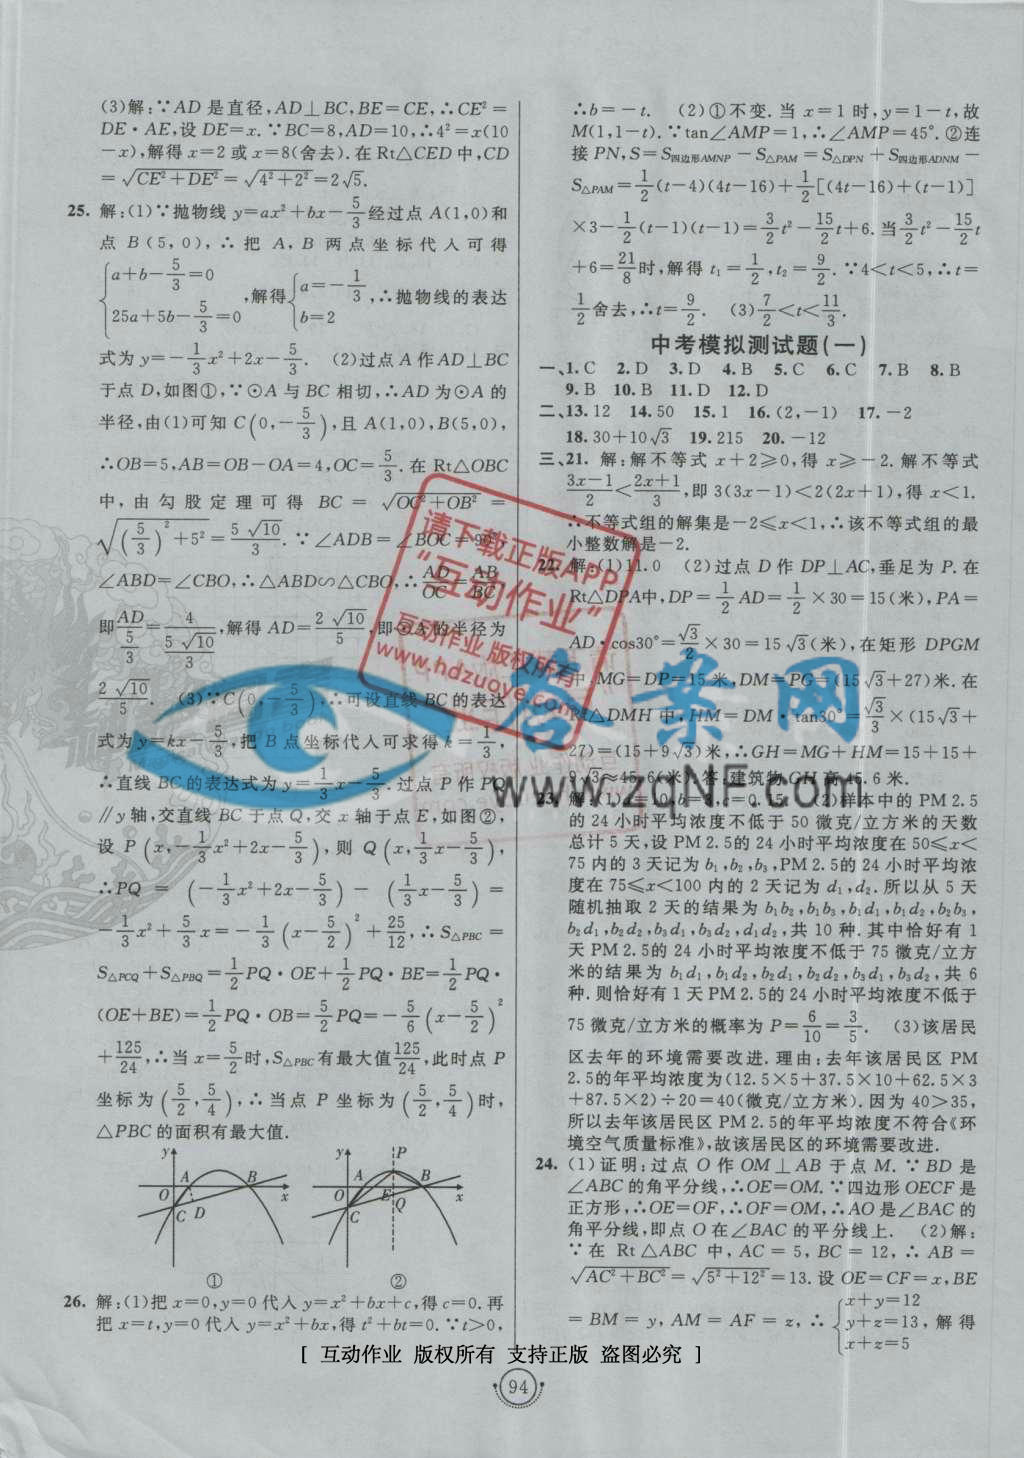 (3)解:∵AD 是直径,AD⊥BC,BE=CE,∴CE²=
DE·AE,设 DE=x.∵BC=8,AD=10,∴4²=x(10
-x),解得 x=2 或 x=8(舍去).在 Rt△CED 中,CD
=√(CE²+DE²)=√(4²+2²)=2√5.
25. 解:(1)∵抛物线 y=ax²+bx-5/3经过点 A(1,0)和
点 B(5,0),∴把 A,B 两点坐标代入可得
{a+b-5/3=0
25a+5b-5/3=0 ,解得{a=-1/3
b=2 ,∴抛物线的表达
式为 y=-1/3x²+2x-5/3. (2)过点 A 作 AD⊥BC
于点 D,如图①,∵⊙A 与 BC 相切,∴AD 为⊙A 的
半径,由(1)可知 C(0,-5/3),且 A(1,0),B(5,0),
∴OB=5,AB=OB-OA=4,OC=5/3.在 Rt△OBC
中,由勾股定理可得 BC=√(OC²+OB²)=
√((5/3)²+5²)=5√10/3.∵∠ADB=∠BOC=90°,
∠ABD=∠CBO,∴△ABD∽△CBO,∴AD/OC=AB/BC
即AD/(5/3)=4/(5√10/3),解得 AD=2√10/5,即⊙A 的半径为
2√10/5. (3)∵C(0,-5/3),∴可设直线 BC 的表达
式为 y=kx-5/3,把 B 点坐标代入可求得 k=1/3,
∴直线 BC 的表达式为 y=1/3x-5/3.过点 P 作 PQ
∥y 轴,交直线 BC 于点 Q,交 x 轴于点 E,如图②,
设 P(x,-1/3x²+2x-5/3),则 Q(x,1/3x-5/3),
∴PQ=(-1/3x²+2x-5/3)-(1/3x-5/3)=
-1/3x²+5/3x=-1/3(x-5/2)²+25/12,∴S△PBC=
S△PCQ+S△PBQ=1/2PQ·OE+1/2PQ·BE=1/2PQ·
(OE+BE)=1/2PQ·OB=5/2PQ=-5/6(x-5/2)²
+125/24,∴当 x=5/2时,S△PBC有最大值125/24,此时点 P
坐标为(5/2,5/4),∴当点 P 坐标为(5/2,5/4)时,
△PBC 的面积有最大值.
y A B O x C D ①
y P A B O E Q x C ②
26. 解:(1)把 x=0,y=0 代入 y=x²+bx+c,得 c=0.再
把 x=t,y=0 代入 y=x²+bx,得 t²+bt=0.∵t>0,
∴b=-t. (2)①不变.当 x=1 时,y=1-t,故
M(1,1-t).∵tan∠AMP=1,∴∠AMP=45°.②连
接 PN,S=S四边形AMNP-S△PAM=S△DPN+S四边形ADNM-
S△PAM=1/2(t-4)(4t-16)+1/2[(4t-16)+(t-1)]
×3-1/2(t-1)(t-1)=3/2t²-15/2t+6.当3/2t²-15/2t
+6=21/8时,解得 t₁=1/2,t₂=9/2.∵4<t<5,∴t=
1/2舍去,∴t=9/2. (3)7/2<t<11/3.
中考模拟测试题(一)
一、1.C 2.D 3.D 4.B 5.C 6.C 7.B 8.B
9.B 10.B 11.D 12.D
二、13.12 14.50 15.1 16.(2,-1) 17.-2
18.30+10√3 19.215 20.-12
三、21. 解:解不等式 x+2≥0,得 x≥-2.解不等式
(3x-1)/2<(2x+1)/3,即 3(3x-1)<2(2x+1),得 x<1.
∴不等式组的解集是-2≤x<1,∴该不等式组的最
小整数解是-2.
22. 解:(1)11.0 (2)过点 D 作 DP⊥AC,垂足为 P.在
Rt△DPA中,DP=1/2AD=1/2×30=15(米),PA=
AD·cos30°=√3/2×30=15√3(米),在矩形 DPGM
中,MG=DP=15 米,DM=PG=(15√3+27)米.在
Rt△DMH 中,HM=DM·tan30°=√3/3×(15√3+
27)=(15+9√3)米,∴GH=MG+HM=15+15+
9√3≈45.6(米).答:建筑物 GH 高 45.6 米.
23. 解:(1)a=10,b=3,c=0.15. (2)样本中的 PM 2.5
的 24 小时平均浓度不低于 50 微克/立方米的天数
总计 5 天,设 PM 2.5 的 24 小时平均浓度在 50≤x<
75 内的 3 天记为 b₁,b₂,b₃,PM 2.5 的 24 小时平均浓
度在 75≤x<100 内的 2 天记为 d₁,d₂.所以从 5 天
随机抽取 2 天的结果为 b₁b₂,b₁b₃,b₁d₁,b₁d₂,b₂b₃,
b₂d₁,b₂d₂,b₃d₁,b₃d₂,d₁d₂,共 10 种.其中恰好有 1
天 PM 2.5 的 24 小时平均浓度不低于 75 微克/立方
米的结果为 b₁d₁,b₁d₂,b₂d₁,b₂d₂,b₃d₁,b₃d₂,共 6
种.则恰好有 1 天 PM 2.5的 24 小时平均浓度不低于
75 微克/立方米的概率为 P=6/10=3/5. (3)该居民
区去年的环境需要改进.理由:去年该居民区 PM
2.5的年平均浓度为(12.5×5+37.5×10+62.5×3
+87.5×2)÷20=40(微克/立方米).因为 40>35,
所以去年该居民区 PM 2.5的年平均浓度不符合《环
境空气质量标准》,故该居民区的环境需要改进.
24. (1)证明:过点 O 作 OM⊥AB 于点 M.∵BD 是
∠ABC 的角平分线,∴OE=OM.∵四边形 OECF 是
正方形,∴OE=OF,∴OF=OM,∴AO 是∠BAC 的
角平分线,即点 O 在∠BAC 的平分线上. (2)解:
∵在 Rt△ABC 中,AC=5,BC=12,∴AB=
√(AC²+BC²)=√(5²+12²)=13.设 OE=CF=x,BE
=BM=y,AM=AF=z,∴{x+y=12
y+z=13
x+z=5 ,解得
[ 互动作业 版权所有 支持正版 盗图必究 ]
94
请下载正版APP
“互动作业”
互动作业 版权所有
www.hdzuoye.com
答案网
www.zqNF.com